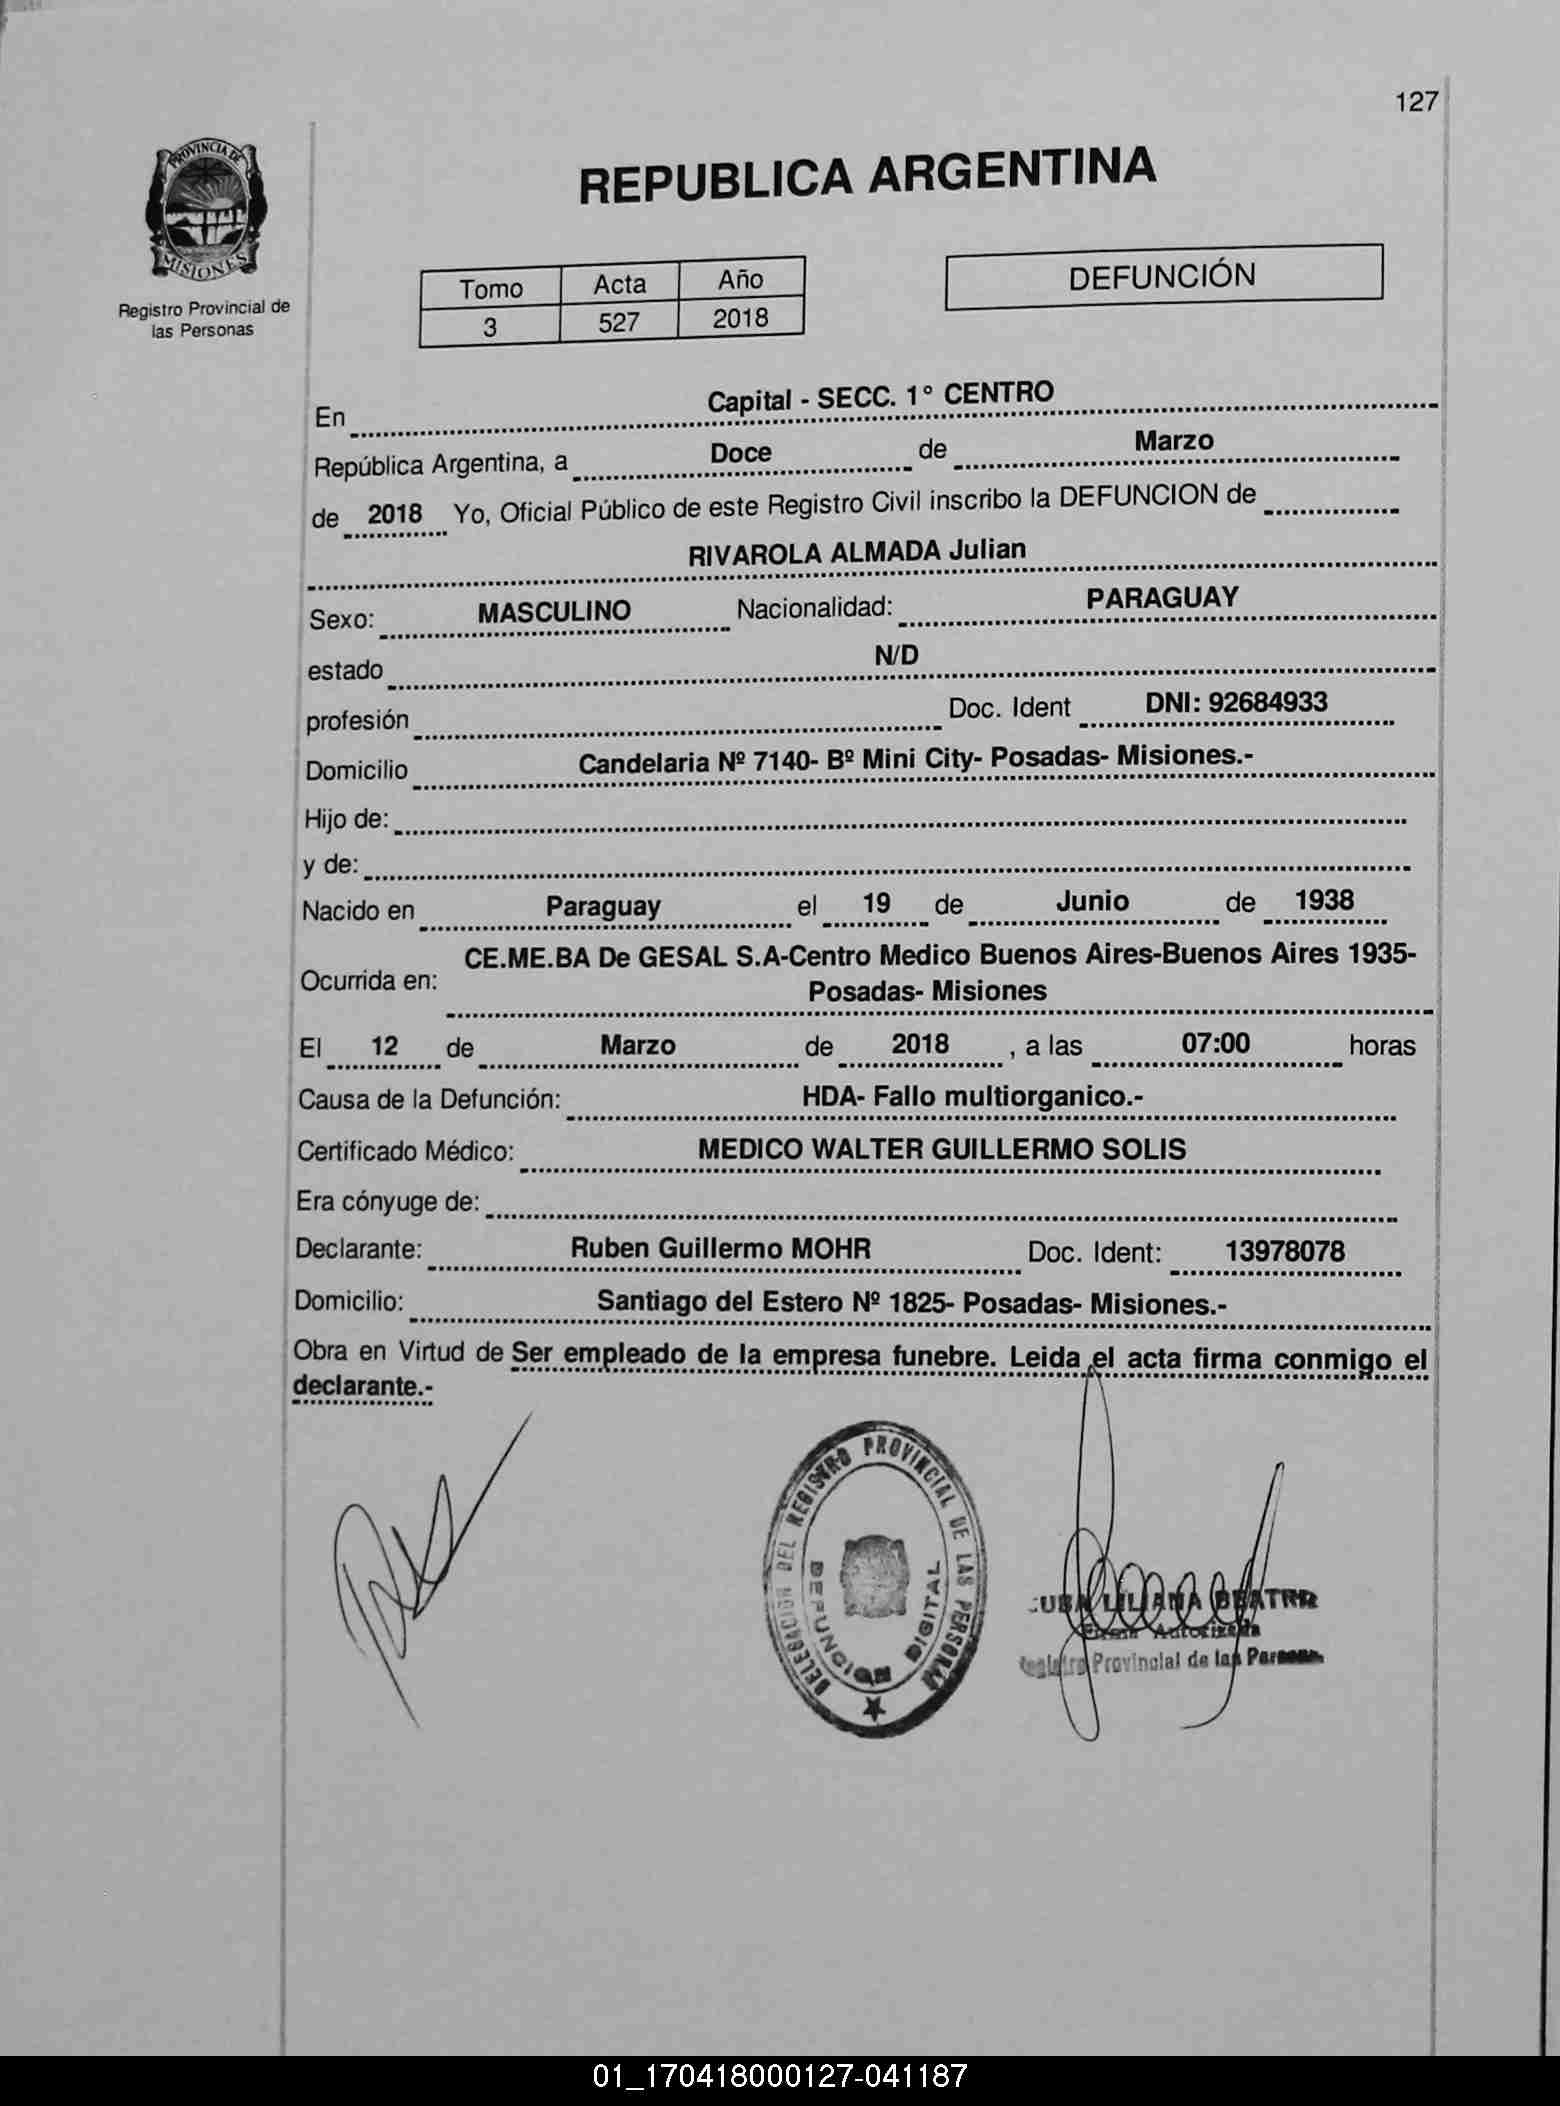 127
PROVINCIA DE
MISIONES
Registro Provincial de
las Personas
REPUBLICA ARGENTINA
Tomo Acta Año
3 527 2018
DEFUNCIÓN
En Capital - SECC. 1° CENTRO
República Argentina, a Doce de Marzo
de 2018 Yo, Oficial Público de este Registro Civil inscribo la DEFUNCION de
RIVAROLA ALMADA Julian
Sexo: MASCULINO Nacionalidad: PARAGUAY
estado N/D
profesión Doc. Ident DNI: 92684933
Domicilio Candelaria Nº 7140- Bº Mini City- Posadas- Misiones.-
Hijo de:
y de:
Nacido en Paraguay el 19 de Junio de 1938
Ocurrida en: CE.ME.BA De GESAL S.A-Centro Medico Buenos Aires-Buenos Aires 1935-
Posadas- Misiones
El 12 de Marzo de 2018 , a las 07:00 horas
Causa de la Defunción: HDA- Fallo multiorganico.-
Certificado Médico: MEDICO WALTER GUILLERMO SOLIS
Era cónyuge de:
Declarante: Ruben Guillermo MOHR Doc. Ident: 13978078
Domicilio: Santiago del Estero Nº 1825- Posadas- Misiones.-
Obra en Virtud de Ser empleado de la empresa funebre. Leida el acta firma conmigo el
declarante.-
DELEGACION DEL REGISTRO PROVINCIAL DE LAS PERSONAS
DEFUNCION DIGITAL
LILIANA
Firma Autorizada
Provincial de las
01_170418000127-041187